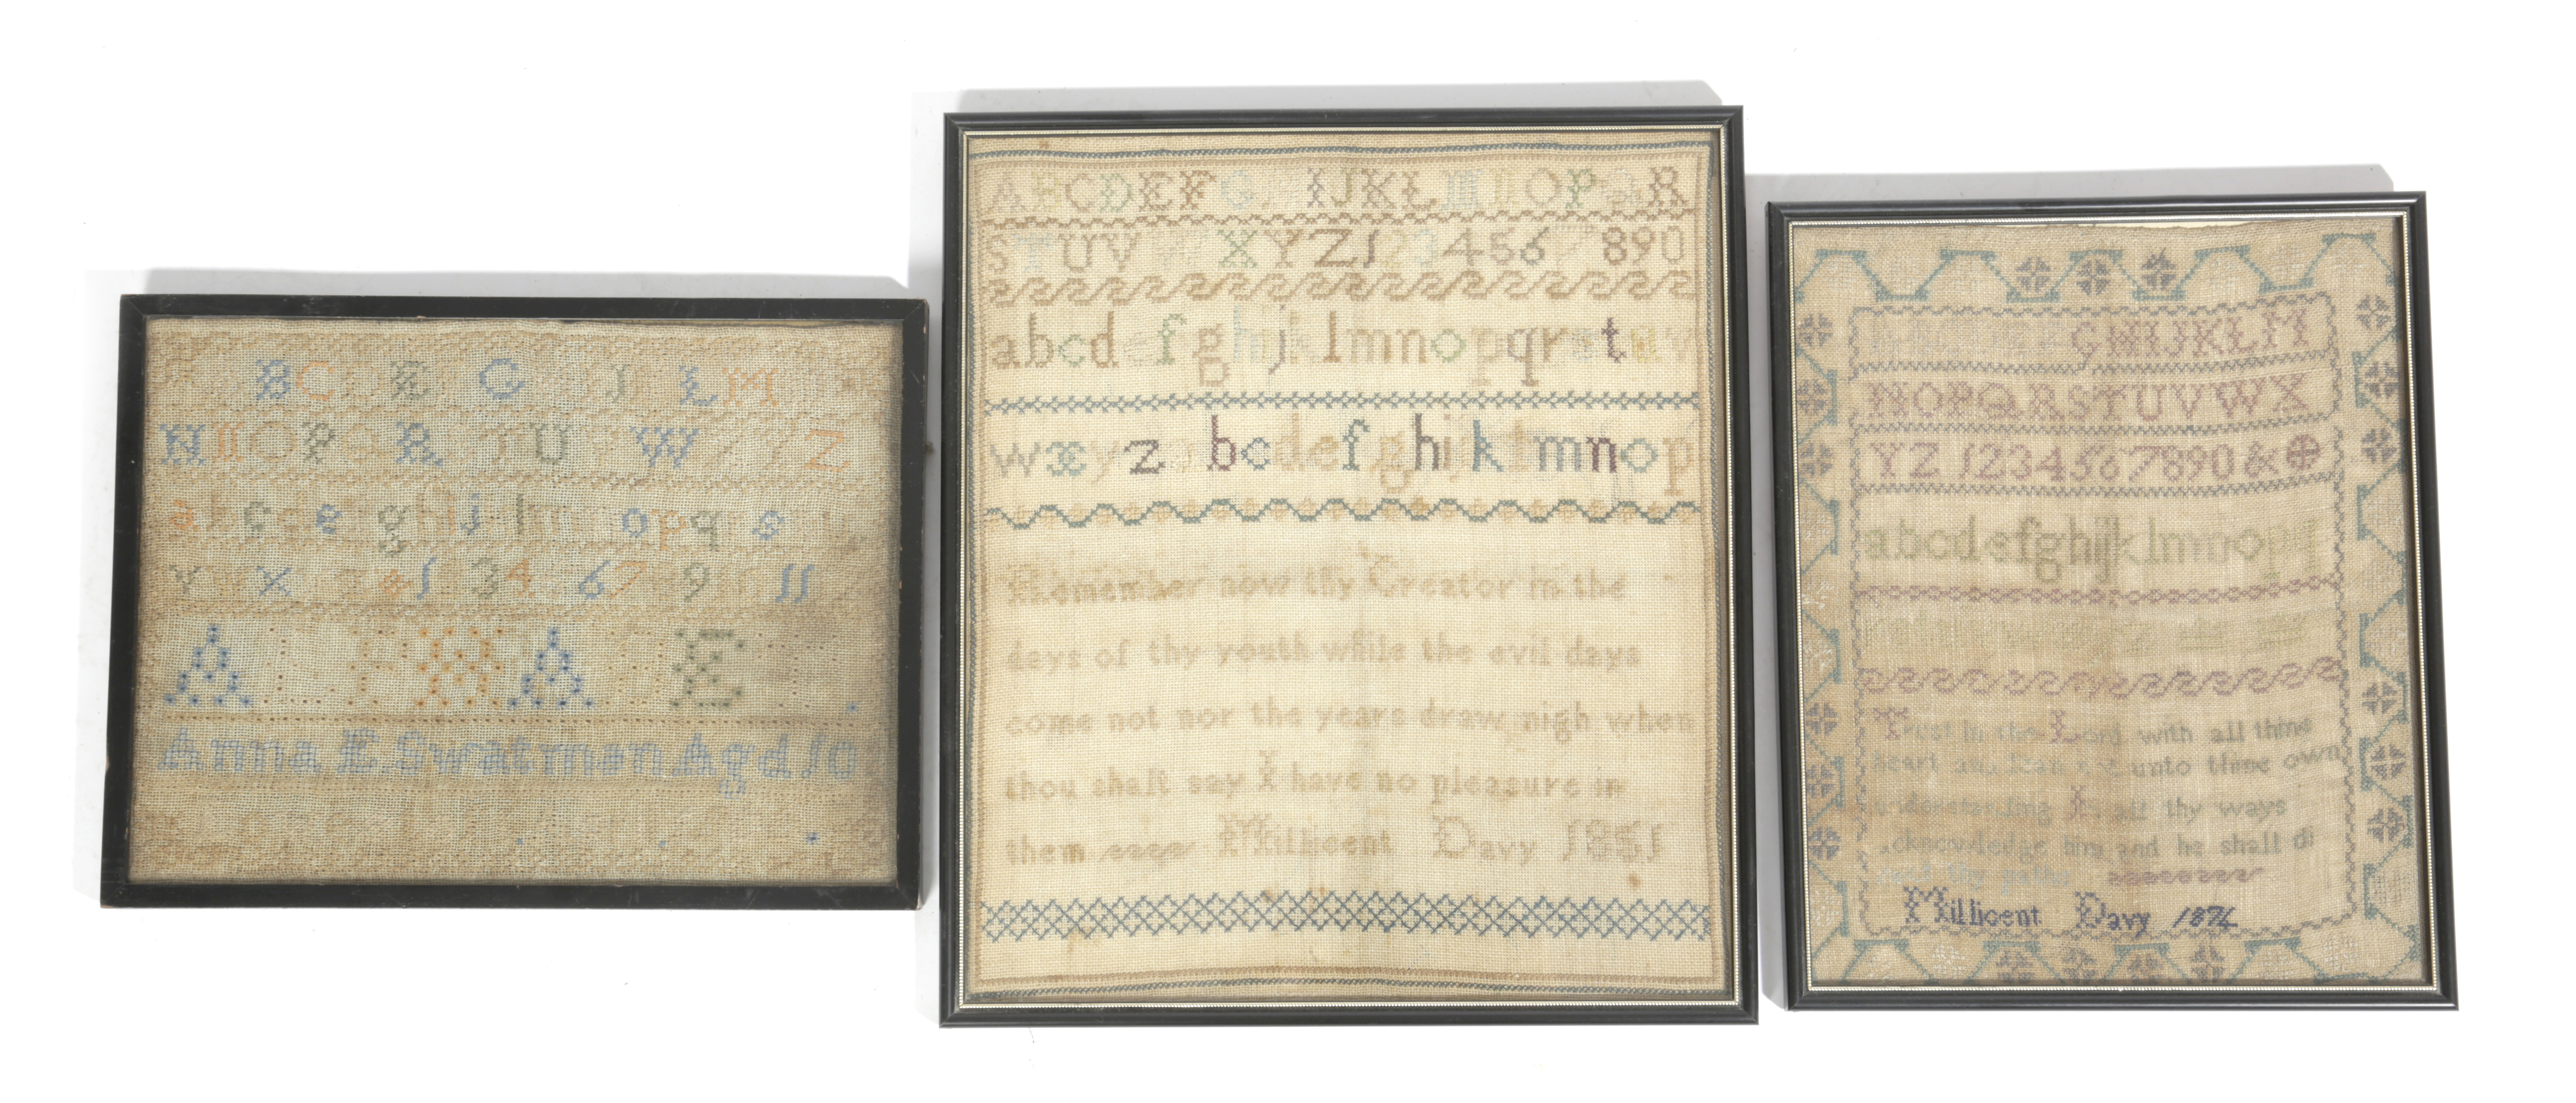 B C E G J L M
N O P Q R T U V W Z
a b c d e g h i j l o p q s
v x & 1 3 4 6 7 9 11
A L P H A B E T
Anna E. Swatman Agd 10
A B C D E F G I J K L M N O P Q R
S T U V W X Y Z 1 2 3 4 5 6 7 8 9 0
a b c d e f g h i j k l m n o p q r s t u v
w x y z b c d e f g h i j k l m n o p
Remember now thy Creator in the
days of thy youth while the evil days
come not nor the years draw nigh when
thou shalt say I have no pleasure in
them Millicent Davy 1881
G H I J K L M
N O P Q R S T U V W X
Y Z 1 2 3 4 5 6 7 8 9 0 &
a b c d e f g h i j k l m n o p q
Trust in the Lord with all thine
heart and lean not unto thine own
understanding In all thy ways
acknowledge him and he shall di
rect thy paths
Millicent Davy 187